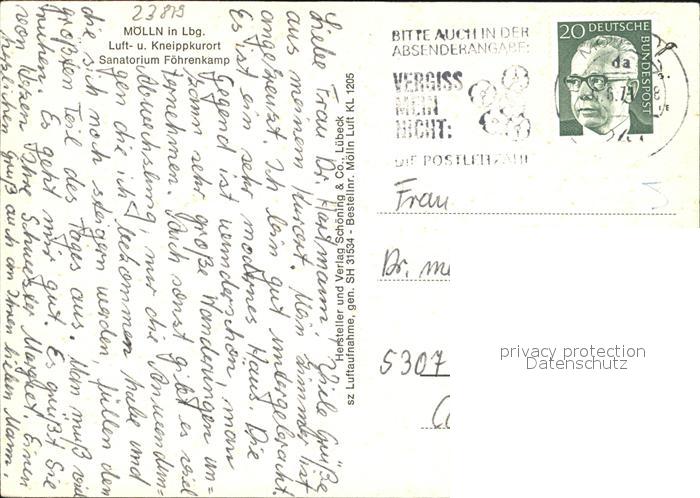 23819
MÖLLN in Lbg.
Luft- u. Kneippkurort
Sanatorium Föhrenkamp
Liebe Frau Dr. Hartmann! Viele Grüße
aus meinem Kurort. Mein Zimmer ist
angeheizt. Ich bin gut untergebracht.
Es ist ein sehr modernes Haus. Die
Gegend ist wunderschön, man
kann sehr große Wanderungen un=
ternehmen. Auch sonst gibt es viel
Abwechslung, mir die Anwendun=
gen die ich bekommen habe und
die sich noch steigern werden füllen den
größten Teil des Tages aus. Man muß viel
ruhen. Es geht mir gut. Es grüßt Sie
von Herzen Ihre Schwester Margret. Einen
herzlichen Gruß auch an Ihren lieben Mann.
Hersteller und Verlag Schöning & Co., Lübeck
sz Luftaufnahme, gen. SH 31534 - Bestellnr. Mölln Luft KL 1205
BITTE AUCH IN DER
ABSENDERANGABE:
VERGISS
MEIN
NICHT:
DIE POSTLEITZAHL
20 DEUTSCHE
BUNDESPOST
da
Frau
Dr. me
5307
privacy protection
Datenschutz